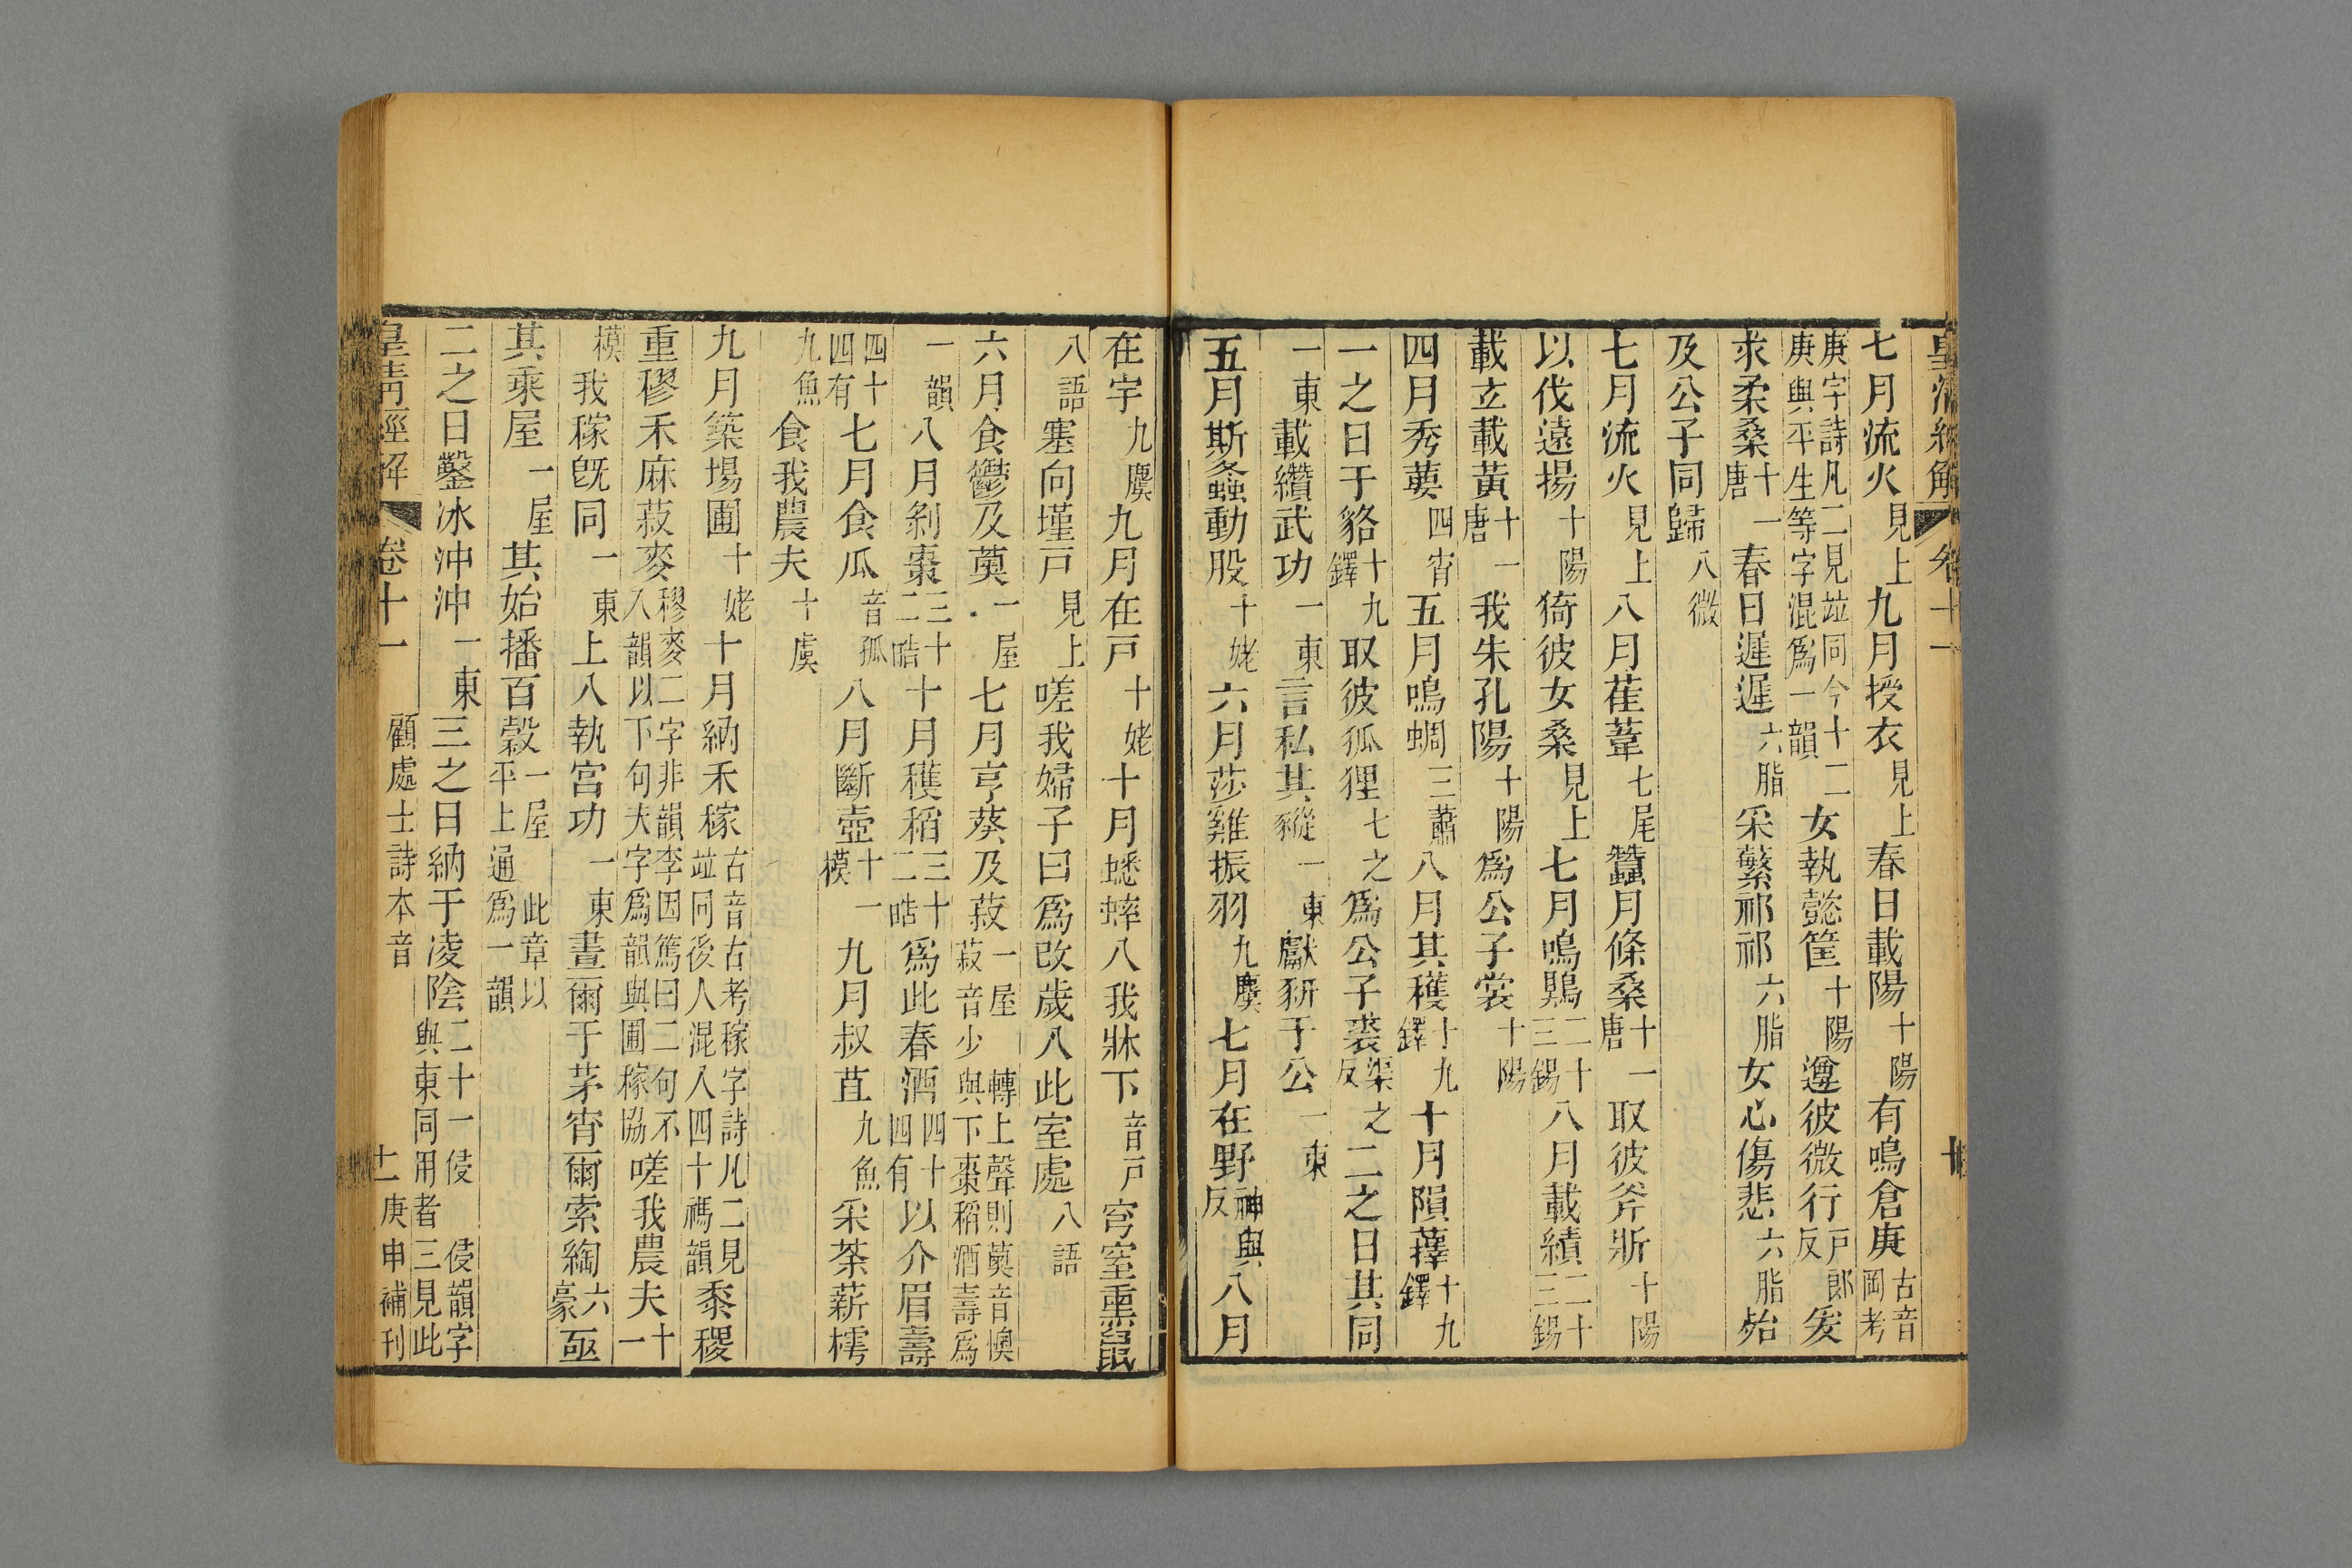 皇清經解 卷十一
七月流火見上九月授衣見上春日載陽十陽有鳴倉庚古音岡考
庚字詩凡二見竝同今十二庚與平生等字混爲一韻女執懿筐十陽遵彼微行戸郎反爰
求柔桑十一唐春日遲遲六脂采蘩祁祁六脂女心傷悲六脂殆
及公子同歸八微
七月流火見上八月萑葦七尾蠶月條桑十一唐取彼斧斨十陽
以伐遠揚十陽猗彼女桑見上七月鳴鵙二十三錫八月載績二十三錫
載玄載黃十一唐我朱孔陽十陽爲公子裳十陽
四月秀葽四宵五月鳴蜩三蕭八月其穫十九鐸十月隕蘀十九鐸
一之日于貉十九鐸取彼狐狸七之爲公子裘渠之反二之日其同
一東載纘武功一東言私其豵一東獻豜于公一東
五月斯螽動股十姥六月莎雞振羽九麌七月在野神與反八月
在宇九麌九月在戸十姥十月蟋蟀入我牀下音戸穹窒熏鼠
八語塞向墐戸見上嗟我婦子曰爲改歲入此室處八語
六月食鬱及薁一屋七月亨葵及菽一屋 轉上聲則薁音懊菽音少與下棗稻酒壽爲
一韻八月剝棗三十二晧十月穫稻三十二晧爲此春酒四十四有以介眉壽
四十四有七月食瓜音孤八月斷壺十一模九月叔苴九魚采荼薪樗
九魚食我農夫十虞
九月築場圃十姥十月納禾稼古音古考稼字詩凡二見竝同後人混入四十禡韻黍稷
重穋禾麻菽麥穋麥二字非韻李因篤曰二句不入韻以下句夫字爲韻與圃稼協嗟我農夫十一
模我稼旣同一東上入執宮功一東晝爾于茅宵爾索綯六豪亟
其乘屋一屋其始播百穀一屋 此章以平上通爲一韻
二之日鑿冰沖沖一東三之日納于凌陰二十一侵 侵韻字與東同用者三見此
皇清經解 卷十一 顧處士詩本音 十一 庚申補刊